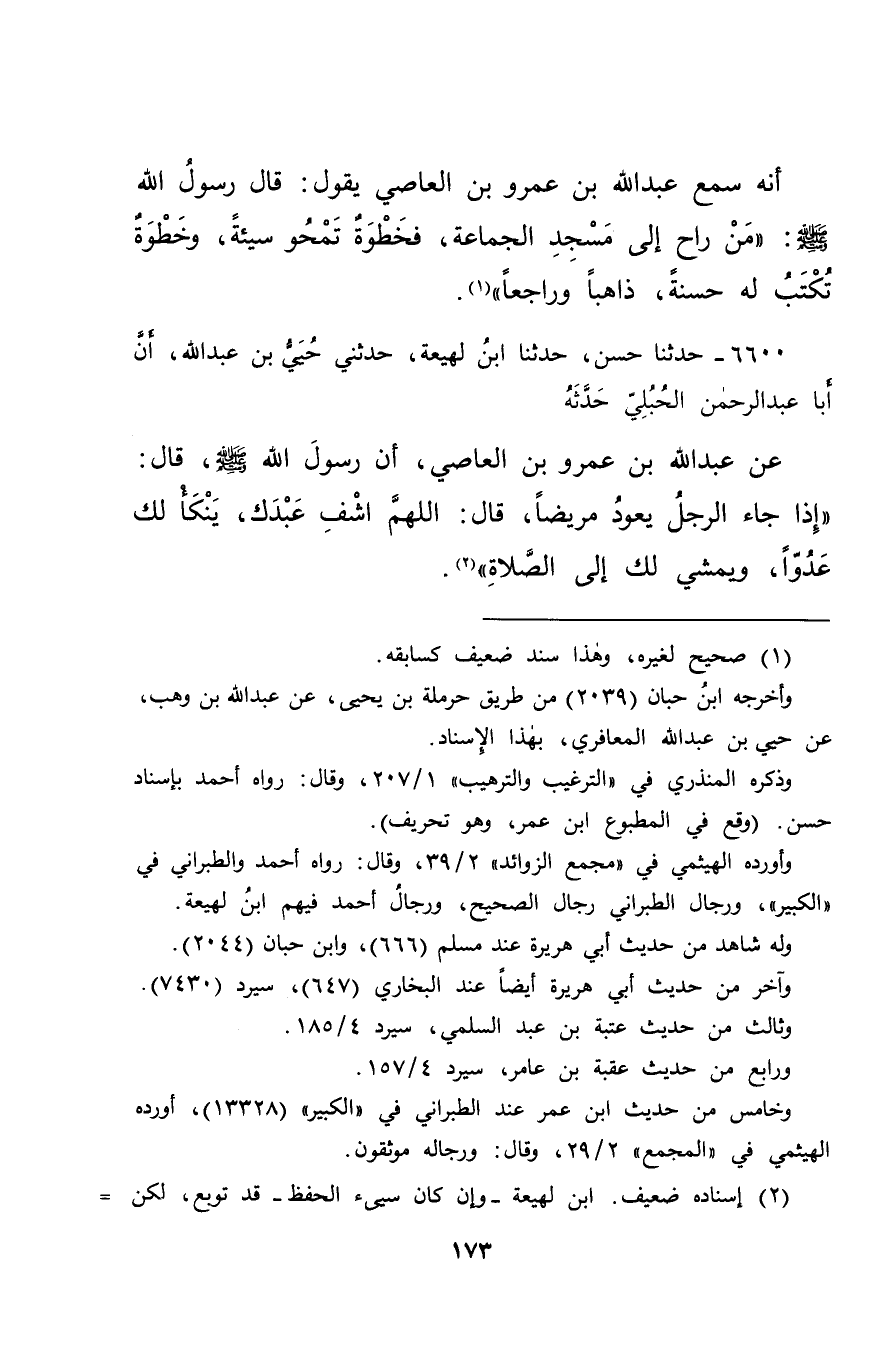 أنه سمع عبدالله بن عمرو بن العاصي يقول: قال رسولُ الله
ﷺ: «مَنْ راح إلى مَسْجِدِ الجماعة، فخَطْوَةٌ تَمْحُو سيئةً، وخَطْوَةٌ
تُكْتَبُ له حسنةً، ذاهباً وراجعاً»(١).
٦٦٠٠ـ حدثنا حسن، حدثنا ابنُ لهيعة، حدثني حُيَيُّ بن عبدالله، أَنَّ
أَبا عبدالرحمٰن الحُبُلِيّ حَدَّثَهُ
عن عبدالله بن عمرو بن العاصي، أن رسولَ الله ﷺ، قال:
«إِذا جاء الرجلُ يعودُ مريضاً، قال: اللهمَّ اشْفِ عَبْدَك، يَنْكَأْ لك
عَدُوّاً، ويمشي لك إلى الصَّلاةِ»(٢).
(١) صحيح لغيره، وهٰذا سند ضعيف كسابقه.
وأخرجه ابنُ حبان (٢٠٣٩) من طريق حرملة بن يحيى، عن عبدالله بن وهب،
عن حيي بن عبدالله المعافري، بهٰذا الإِسناد.
وذكره المنذري في «الترغيب والترهيب» ٢٠٧/١، وقال: رواه أحمد بإسناد
حسن. (وقع في المطبوع ابن عمر، وهو تحريف).
وأورده الهيثمي في «مجمع الزوائد» ٣٩/٢، وقال: رواه أحمد والطبراني في
«الكبير»، ورجال الطبراني رجال الصحيح، ورجالُ أحمد فيهم ابنُ لهيعة.
وله شاهد من حديث أبي هريرة عند مسلم (٦٦٦)، وابن حبان (٢٠٤٤).
وآخر من حديث أبي هريرة أيضاً عند البخاري (٦٤٧)، سيرد (٧٤٣٠).
وثالث من حديث عتبة بن عبد السلمي، سيرد ١٨٥/٤.
ورابع من حديث عقبة بن عامر، سيرد ١٥٧/٤.
وخامس من حديث ابن عمر عند الطبراني في «الكبير» (١٣٣٢٨)، أورده
الهيثمي في «المجمع» ٢٩/٢، وقال: ورجاله موثقون.
(٢) إسناده ضعيف. ابن لهيعة ـ وإن كان سيىء الحفظ ـ قد توبع، لكن =
١٧٣